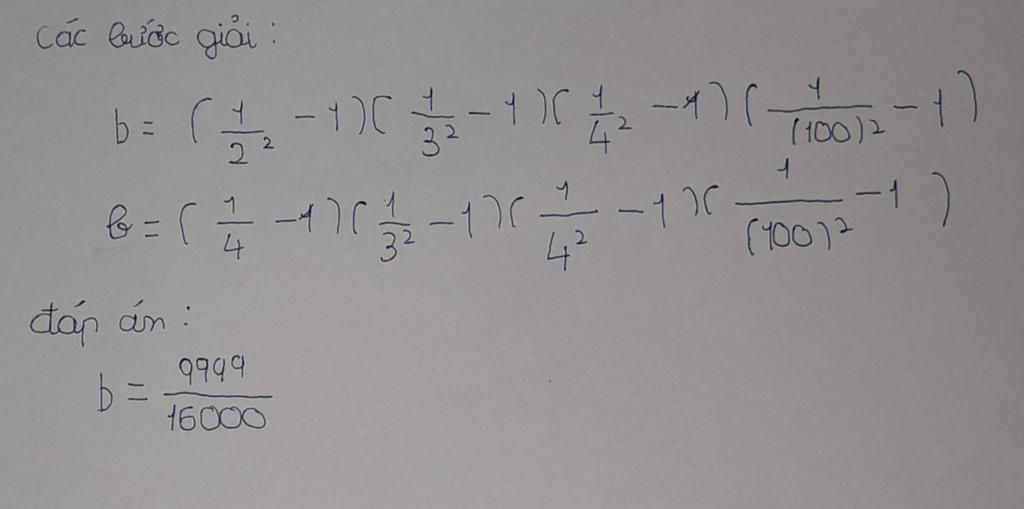 các bước giải :
b = ( 1/2² - 1 ) ( 1/3² - 1 ) ( 1/4² - 1 ) ( 1/(100)² - 1 )
b = ( 1/4 - 1 ) ( 1/3² - 1 ) ( 1/4² - 1 ) ( 1/(100)² - 1 )
đáp án :
b = 9999/16000